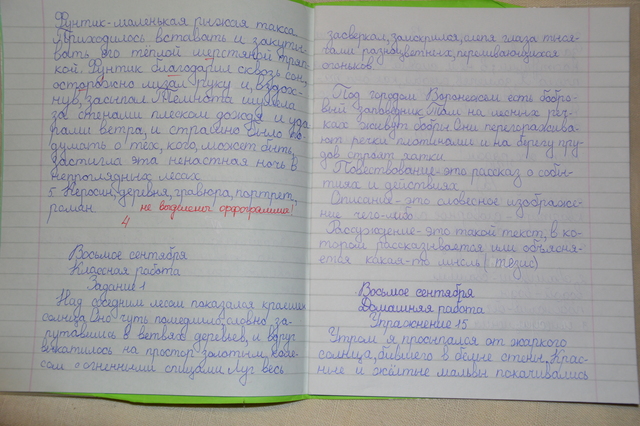 Фунтик-маленькая рыжая такса.
Приходилось вставать и закуты-
вать его тёплой шерстяной тряп-
кой. Фунтик благодарил сквозь сон,
осторожно лизал руку и, вздох-
нув, засыпал. Темнота шумела
за стенами плеском дождя и уда-
рами ветра, и страшно было по-
думать о тех, кого, может быть,
застигла эта ненастная ночь в
непроглядных лесах.
5 Керосин, деревня, гравюра, портрет,
роман.
не выделены орфограммы!
4
Восьмое сентября
Классная работа
Задание 1
Над соседним лесом показался краешек
солнца. Оно чуть помедлило, словно за-
путавшись в ветвях деревьев, и вдруг
выкатилось на простор золотым, колё-
сом с огненными спицами. Луг весь
засверкал, заискрился, слепя глаза тыся-
чами разноцветных, переливающихся
огоньков.
Под городом Воронежем есть бобро-
вый заповедник. Там на лесных реч-
ках живут бобры. Они перегоражива-
ют речки плотинами и на берегу пру-
дов строят хатки.
Повествование-это рассказ о собы-
тиях и действиях.
Описание-это словесное изображе-
ние чего-либо
Рассуждение-это такой текст, в ко-
тором рассказывается или объясня-
ется какая-то мысль (тезис)
Восьмое сентября
Домашняя работа
Упражнение 15
Утром я просыпался от жаркого
солнца, бившего в белые стены. Крас-
ные и жёлтые мальвы покачивались